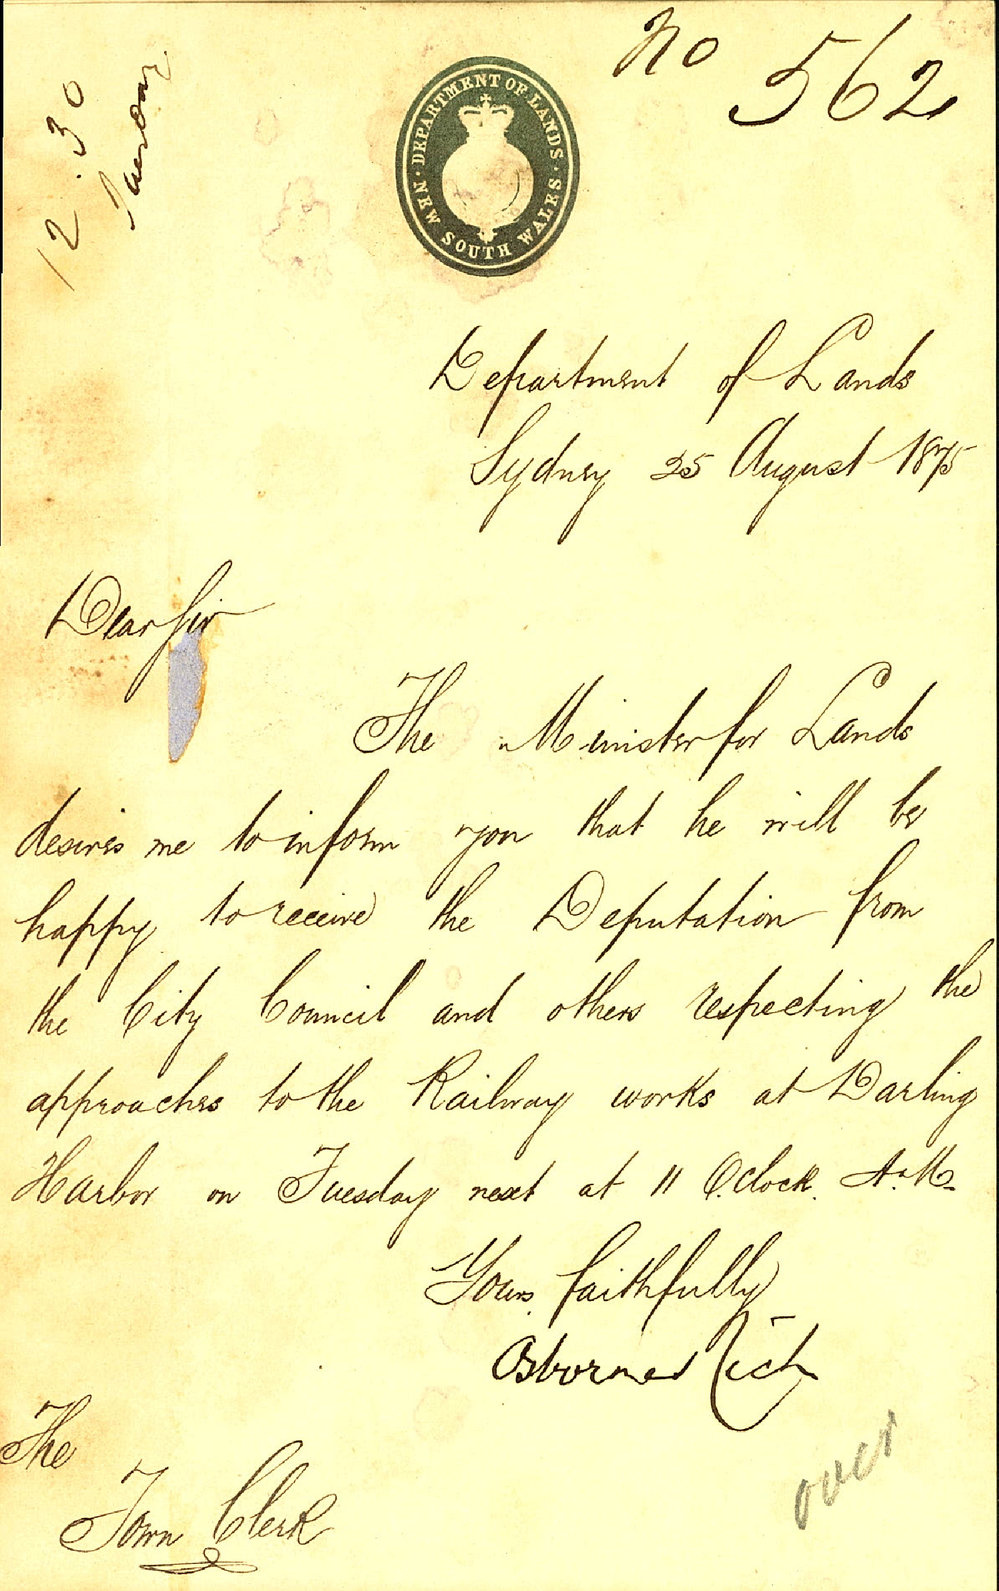 No 562
12.30
DEPARTMENT OF LANDS
NEW SOUTH WALES
Department of Lands
Sydney 25 August 1875
Dear Sir
The Minister for Lands
desires me to inform you that he will be
happy to receive the Deputation from
the City Council and others respecting the
approaches to the Railway works at Darling
Harbor on Tuesday next at 11 O.Clock. A.M.
Yours faithfully
Osborne Rich
The
Town Clerk
over